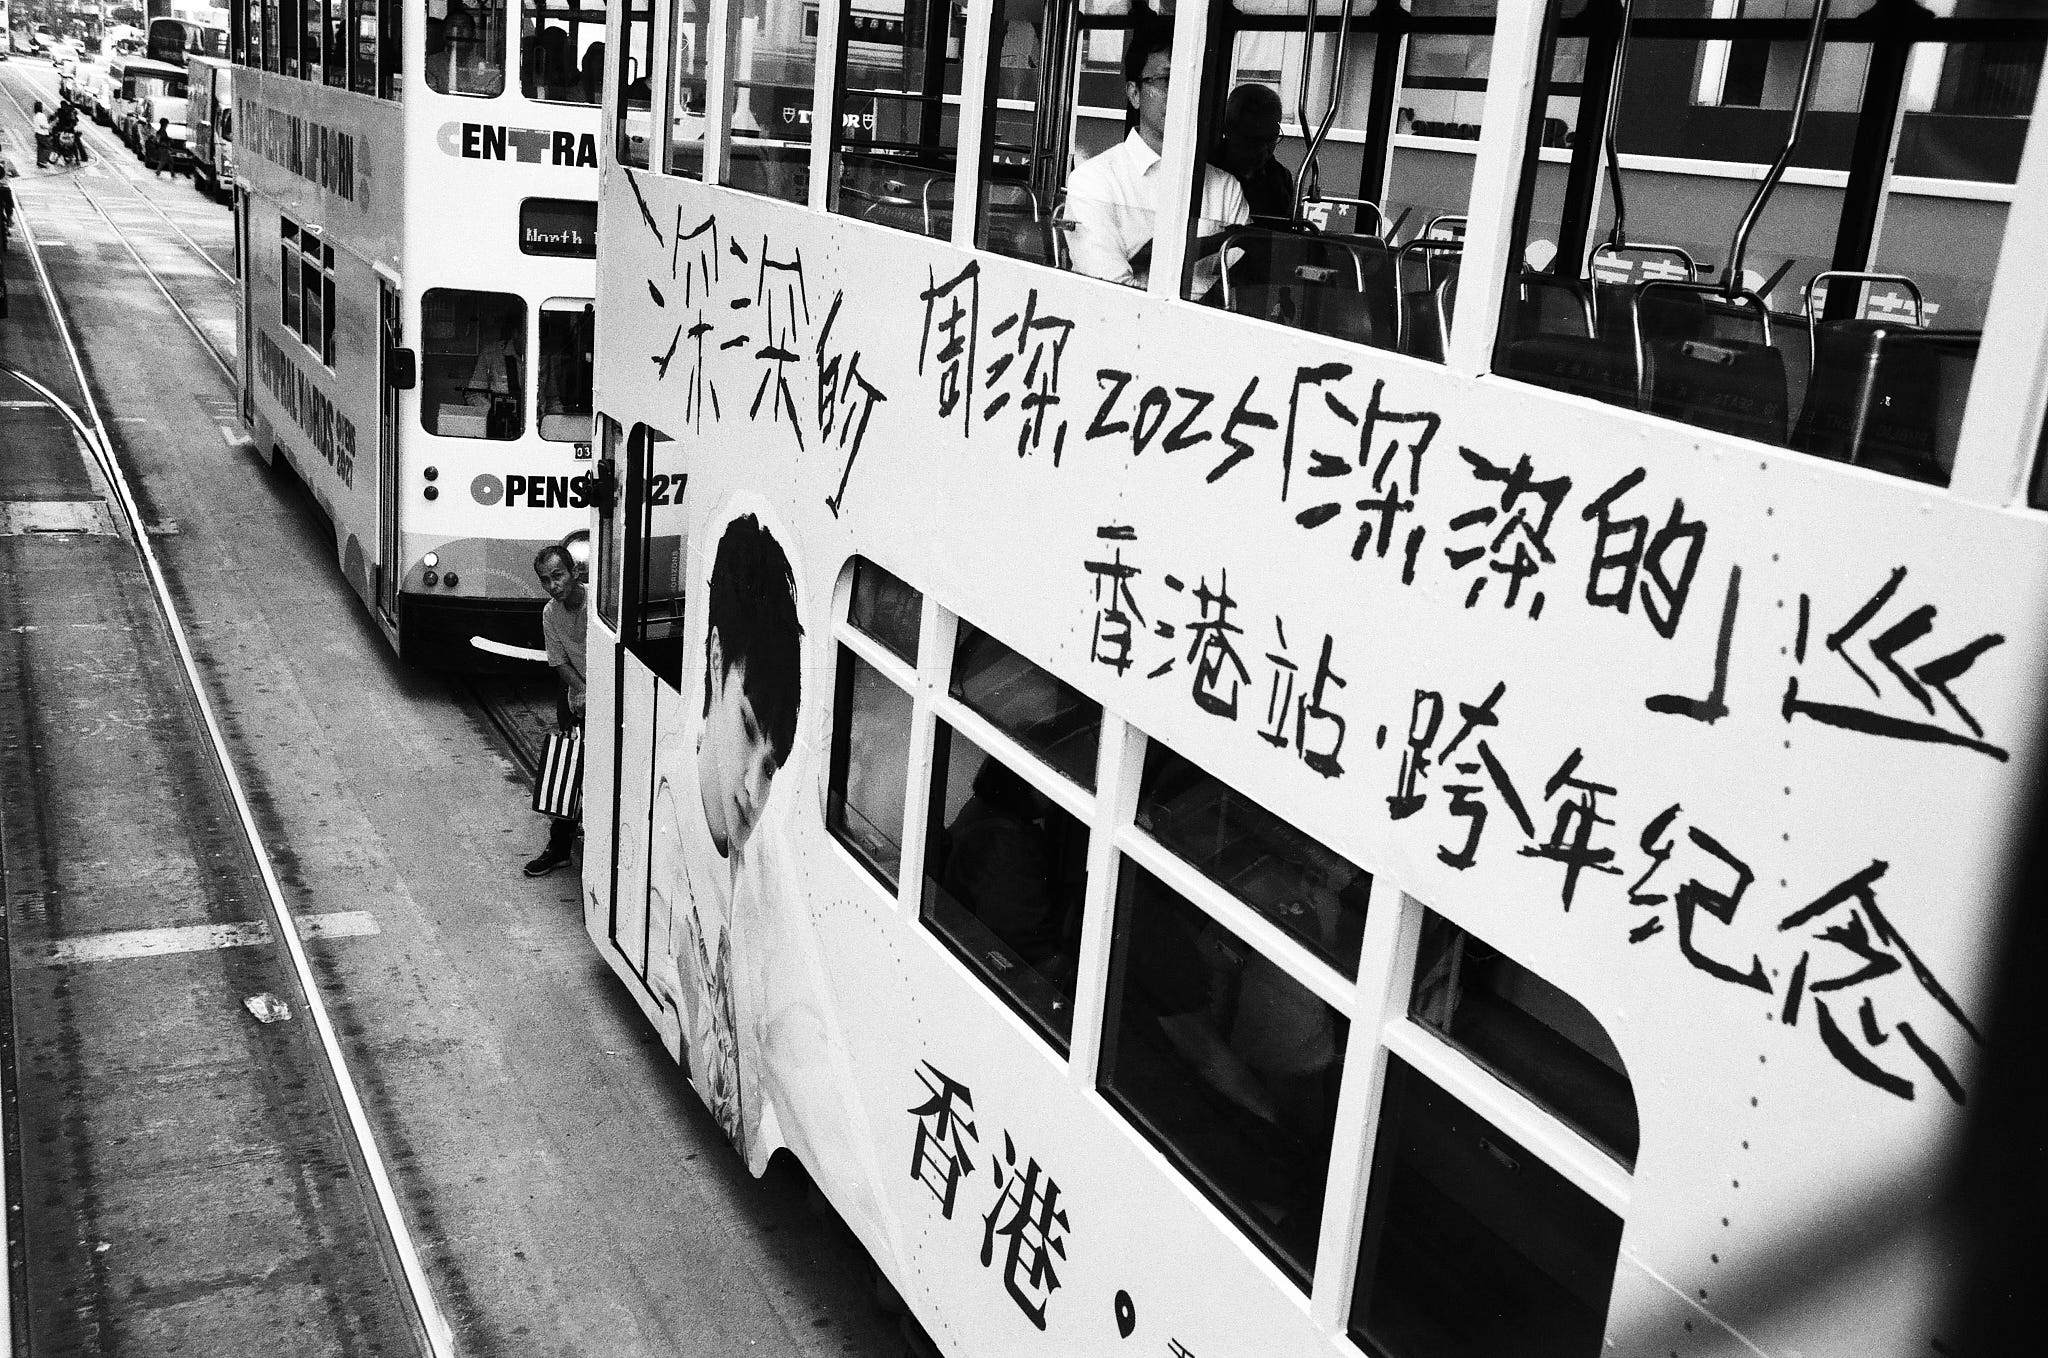 CENTRA
North
OPENS
27
TUDOR
深深的
周深2025「深深的」巡
香港站·跨年纪念
香港·